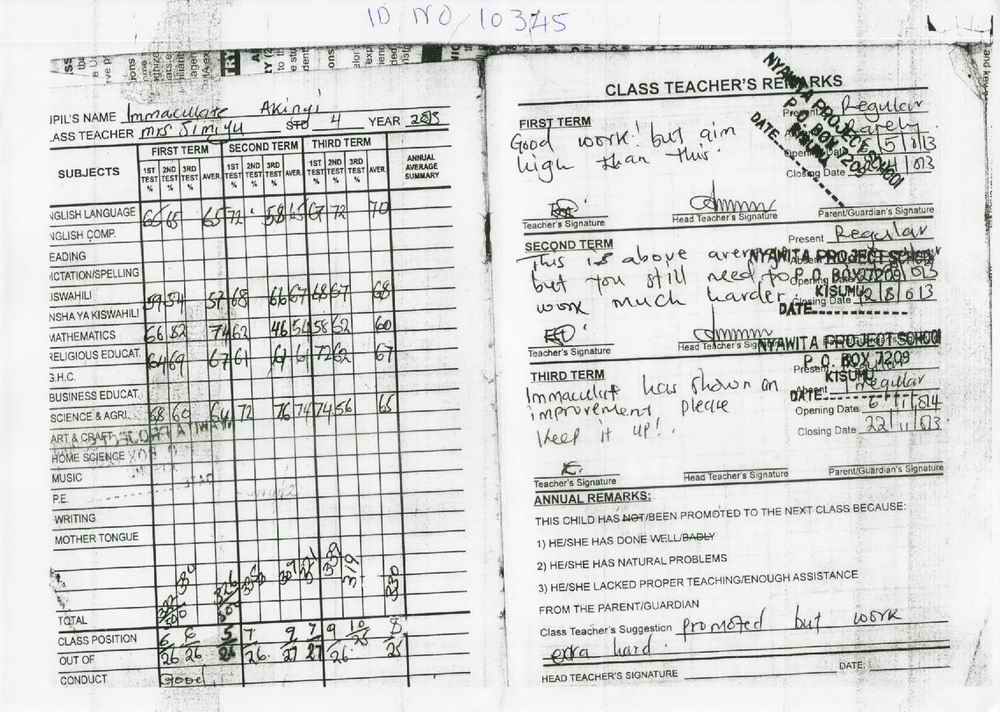 ID NO 10345
PUPIL'S NAME Immaculate Akinyi
CLASS TEACHER Mrs Simiyu STD 4 YEAR 2013
SUBJECTS
FIRST TERM SECOND TERM THIRD TERM
1ST TEST % 2ND TEST % 3RD TEST % AVER. 1ST TEST % 2ND TEST % 3RD TEST % AVER. 1ST TEST % 2ND TEST % 3RD TEST % AVER.
ANNUAL AVERAGE SUMMARY
NGLISH LANGUAGE 65 65 65 72 58 65 67 72 70
NGLISH COMP.
EADING
ICTATION/SPELLING
ISWAHILI 59 54 57 68 66 67 68 67 68
NSHA YA KISWAHILI
MATHEMATICS 66 82 74 62 46 54 58 62 60
RELIGIOUS EDUCAT. 64 69 67 61 61 61 72 62 67
G.H.C.
BUSINESS EDUCAT.
SCIENCE & AGRI. 68 60 64 72 76 74 74 56 65
ART & CRAFT
HOME SCIENCE
MUSIC
P.E
WRITING
MOTHER TONGUE
TOTAL
CLASS POSITION 6 6 5 7 9 7 9 10/25 8
OUT OF 26 26 26 26 27 27 26 25
CONDUCT good
CLASS TEACHER'S REMARKS
FIRST TERM
Good work! but aim
high than this.
Present Regular
Rarely
Opening Date
Closing Date
NYAWITA PROJECT SCHOOL
P. O. BOX 7209
KISUMU
DATE
Teacher's Signature Head Teacher's Signature Parent/Guardian's Signature
SECOND TERM
This is above average
but you still need to
work much harder
Present Regular
NYAWITA PROJECT SCHOOL
P. O. BOX 7209
KISUMU
DATE
Opening Date
Closing Date 2 8 013
Teacher's Signature Head Teacher's Sig
THIRD TERM
Immaculate has shown an
improvement please
Keep it up!.
NYAWITA PROJECT SCHOOL
P. O. BOX 7209
KISUMU
DATE
Present
Absent regular
Opening Date 6 1 014
Closing Date 22 11 013
Teacher's Signature Head Teacher's Signature Parent/Guardian's Signature
ANNUAL REMARKS:
THIS CHILD HAS NOT/BEEN PROMOTED TO THE NEXT CLASS BECAUSE:
1) HE/SHE HAS DONE WELL/BADLY
2) HE/SHE HAS NATURAL PROBLEMS
3) HE/SHE LACKED PROPER TEACHING/ENOUGH ASSISTANCE
FROM THE PARENT/GUARDIAN
Class Teacher's Suggestion promoted but work
extra hard.
HEAD TEACHER'S SIGNATURE DATE: